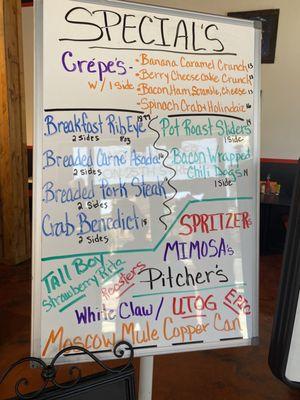 SPECIAL'S
Crépe's -
w/ 1 side
- Banana Caramel Crunch
- Berry Cheesecake Crunch
- Bacon, Ham, Scramble, Cheese
- Spinach Crab & Holindaize
Breakfast Rib Eye
2 sides 8oz
Breaded Carne Asada
2 sides
Breaded Pork Steak
2 sides
Crab Benedict
2 sides
Pot Roast Sliders
1 side
Bacon Wrapped
Chili Dogs
1 side
Tall Boy
Strawberry Rita
Roosters
SPRITZER's
MIMOSA's
Pitcher's
White Claw / UTOG EPIC
Moscow Mule Copper Can